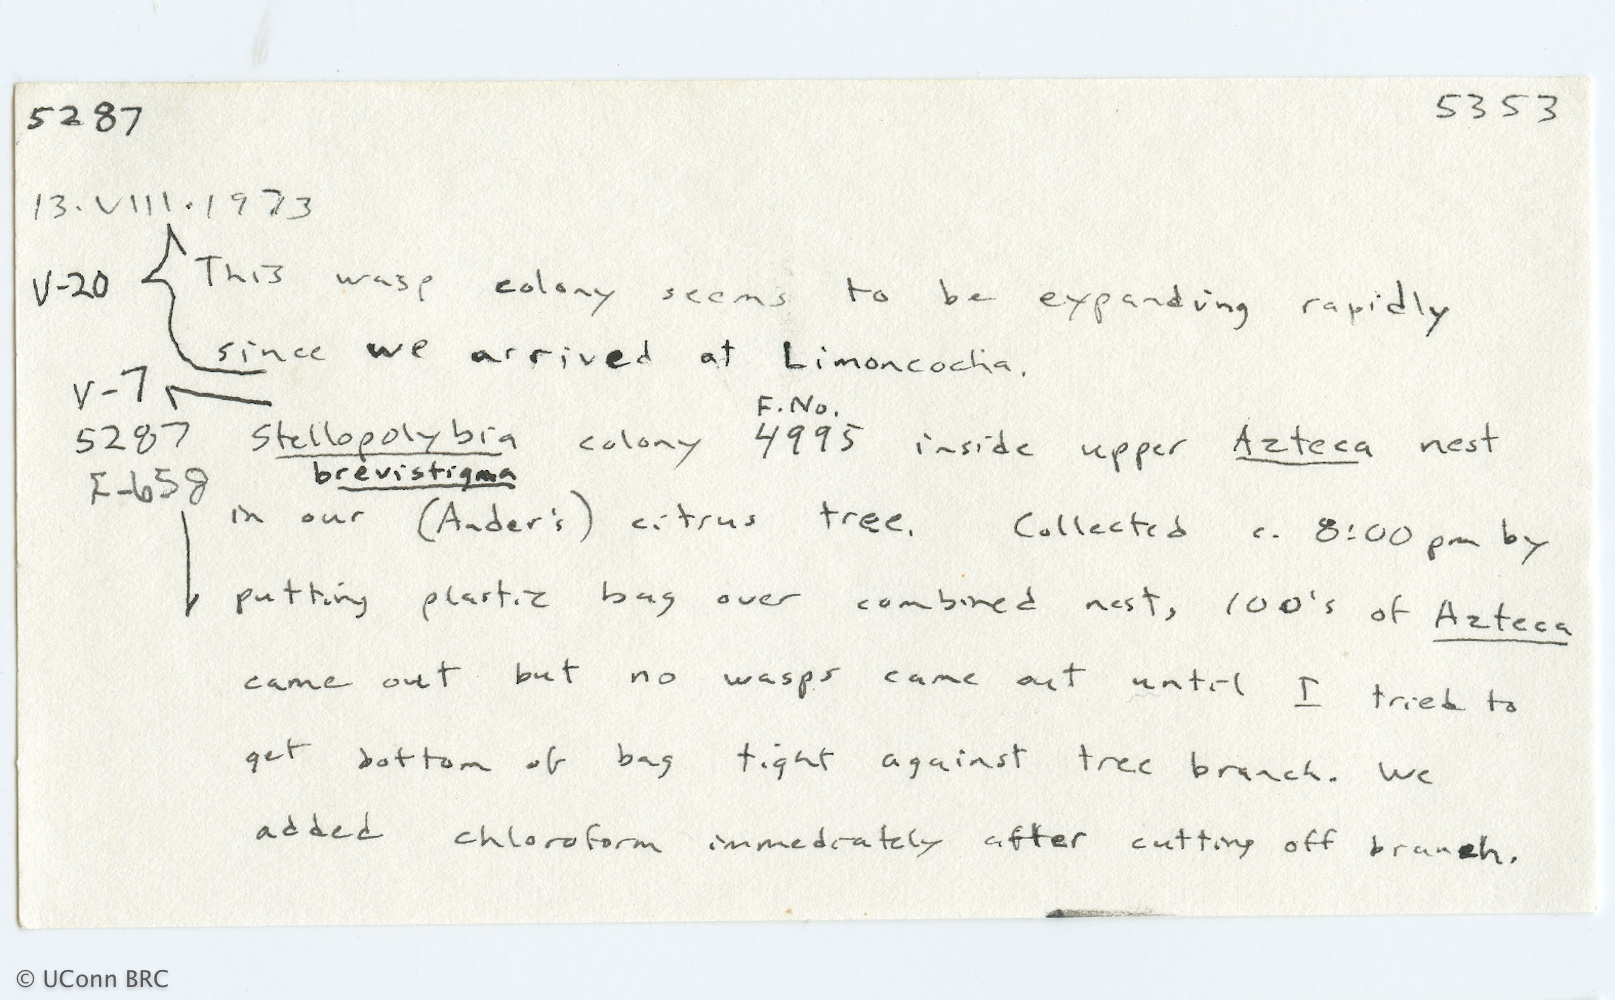 5287 5353
13.VIII.1973
V-20 This wasp colony seems to be expanding rapidly
since we arrived at Limoncocha.
V-7
F.No.
5287 Stellopolybia colony 4995 inside upper Azteca nest
E-658 brevistigma
in our (Ander's) citrus tree. Collected c. 8:00 pm by
putting plastic bag over combined nest, 100's of Azteca
came out but no wasps came out until I tried to
get bottom of bag tight against tree branch. We
added chloroform immediately after cutting off branch.
© UConn BRC